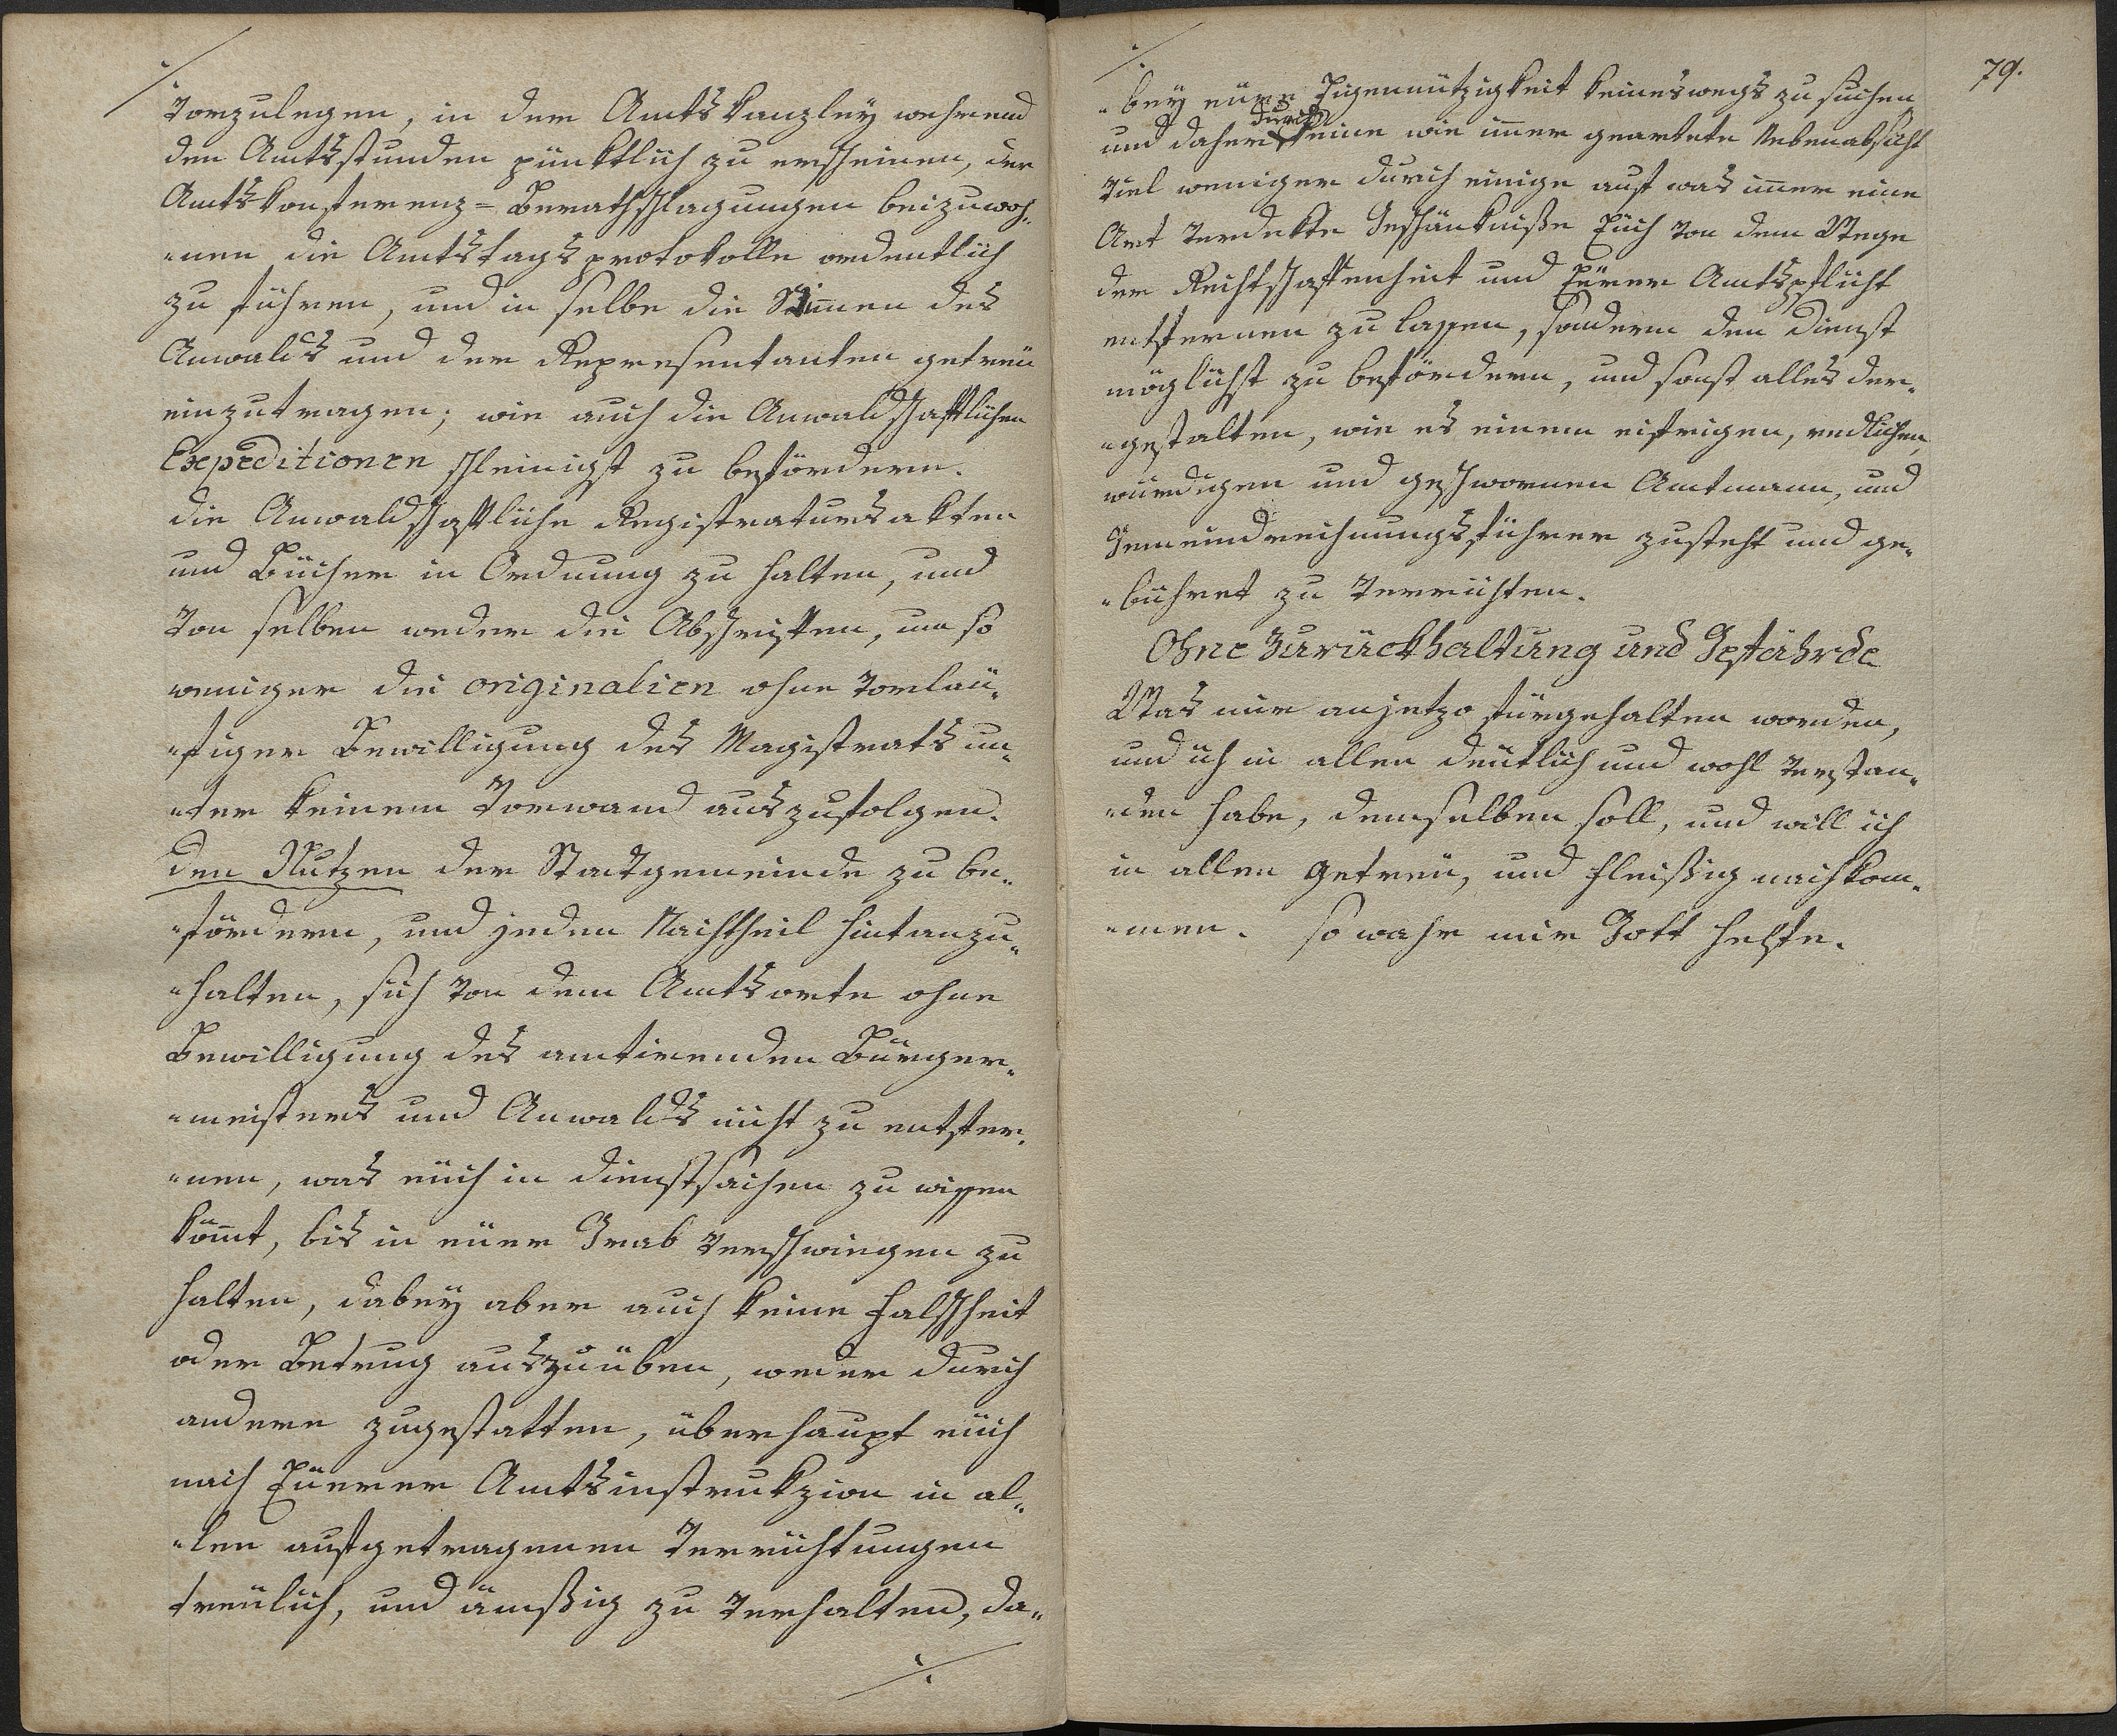 ./.
vorzulegen, in der Amtskanzleÿ wehrend
den Amtsstunden pünktlich zu erscheinen, der
Amtskonferenz= Berathschlagungen beizuwoh„
„nen die Amtstagsprotokolle ordentlich
zu führen, und in selbe die Stim̄en des
Anwalds und der Representanten getreü
einzutragen; wie auch die Anwaldschaftlichen
Expeditionen schleinigst zu befördern.
die Anwaldschaftliche Registratursakten
und Bücher in Ordnung zu halten, und
von selben weder die Abschriften, um so
weniger die originalien ohne vorläu„
„figer Bewilligung des Magistrats un„
„ter keinem Vorwand auszufolgen.
den Nutzen der Stadtgemeinde zu be„
„fördern, und jeden Nachtheil hintanzu„
„halten, sich von dem Amtsorte ohne
Bewilligung des amtirenden Bürger„
„meisters und Anwalds nicht zu entfer„
„nen, was eüch in dienstsachen zu wissen
köm̄t, bis in eüer Grab verschwiegen zu
halten, dabeÿ aber auch keine Falschheit
oder Betrug auszuüben, weder durch
andere zugestatten, überhaupt eüch
nach Eüerer Amtsinstrukzion in al„
„len aufgetragenen Verrichtungen
treülich, und ämßig zu verhalten, da„
./.
79.
./.
„beÿ eüre Eigennützigkeit keineswegs zu suchen
und daher durch keine wie im̄er geartete Nebenabsicht
viel weniger durch einige auf was im̄er eine
Art verdekte Geschänkniße Eüch von dem Wege
der Rechtschaffenheit und Eürer Amtspflicht
entfernen zu lassen, sondern den dienst
möglichst zu befördern, und sonst alles der„
„gestalten, wie es einem eifrigen, redlichen,
würdigen und geschwornen Amtmann, und
Gemeindrechnungsführer zusteht und ge„
„bühret zu verrichten.
Ohne Zurückhaltung und Gefährde
Was mir anjetzo fürgehalten worden,
und ich in allen deütlich und wohl verstan„
„den habe, demselben soll, und will ich
in allen getreü, und fleißig nachkom„
„men. so wahr mir Gott helfe.